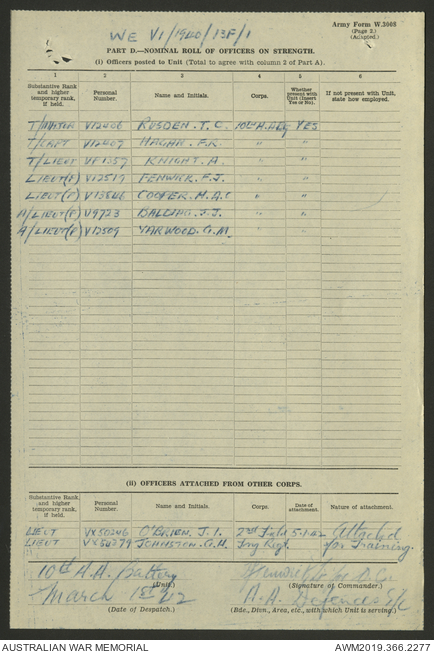 WE V1/1940/13F/1
Army Form W.3008
(Page 2.)
(Adapted.)
PART D.—NOMINAL ROLL OF OFFICERS ON STRENGTH.
(i) Officers posted to Unit (Total to agree with column 2 of Part A).
1 2 3 4 5 6
Substantive Rank and higher temporary rank, if held. Personal Number. Name and Initials. Corps. Whether present with Unit (Insert Yes or No). If not present with Unit, state how employed.
T/MAJOR V12406 RUSDEN. T. C. 10th H.A.Bty YES
T/CAPT V12407 F.R. " "
T/LIEUT VF1357 KNIGHT. A. " "
LIEUT(P) V12517 FENWICK. F.J. " "
LIEUT(P) V13546 COOPER. M.A.C " "
A/LIEUT(P) V9723 BALDING. J.J. " "
A/LIEUT(P) V12509 YARWOOD. G.M. " "
(ii) OFFICERS ATTACHED FROM OTHER CORPS.
Substantive Rank and higher temporary rank, if held. Personal Number. Name and Initials. Corps. Date of attachment. Nature of attachment.
LIEUT VX50246 O'BRIEN. J. I. 2nd Field 5-1-42 Attached
LIEUT VX54279 JOHNSTON. G.H. Trng Regt. for Training.
10th A.A. Battery
(Unit.) (Signature of Commander.)
March 1st 42 A.A. Defences
(Date of Despatch.) (Bde., Divn., Area, etc., with which Unit is serving.)
AUSTRALIAN WAR MEMORIAL AWM2019.366.2277